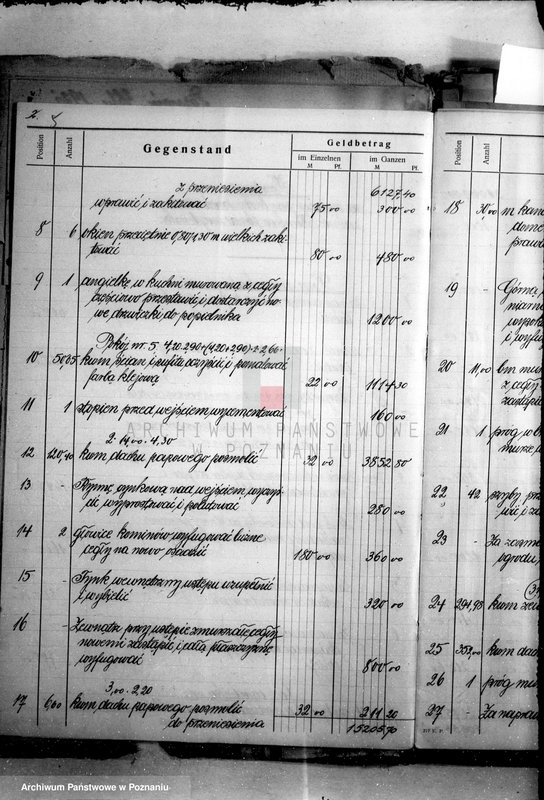 2.
Position
Anzahl
Gegenstand
Geldbetrag
im Einzelnen
im Ganzen
M Pf. M Pf.
z przeniesienia 6127,40
wprawić i zakitować 75 00 300 00
8 6 okien przeciętnie 0,80/1,30 m wielkich zaki-
tować 80 00 480 00
9 1 angielkę w kuchni murowaną z cegły
częściowo przestawić i dostarczyć no-
we drzwiczki do popielnika 1200 00
Pokój nr. 5 4,20.2,90+(4,20+2,90).2.2,60
10 50,65 kwm ścian i sufitu oczyścić i pomalować
farbą klejową 22 00 1114 30
11 1 stopień przed wejściem wycementować 160 00
2.14,00.4,30
12 120,40 kwm dachu papowego posmolić 32 00 3852 80
13 - Rynnę cynkową nad wejściem wyczyś-
cić wyprostować i polutować 280 00
14 2 głowice kominów wyfugować luźne
cegły na nowo osadzić 180 00 360 00
15 - Tynk wewnętrzny ustępu uzupełnić
i wybielić 320 00
16 - Zewnątrz przy ustępie zmurszałe cegły
nowemi zastąpić i całą płaszczyznę
wyfugować 800 00
3,00.2,20
17 6,60 kwm dachu papowego posmolić 32 00 211 20
do przeniesienia 15205,70
Position
Anzahl
18 30,00 m
19 - Górną
20 11,00 bm mur
z cegły
zastąpić
21 1 próg w
22 42 szyby
23 - Za
ogrodu
24 294,98 kwm
25 353,00 kwm dach
26 1 próg mur
27 - Za napraw
ARCHIWUM PAŃSTWOWE
W POZNANIU
Archiwum Państwowe w Poznaniu